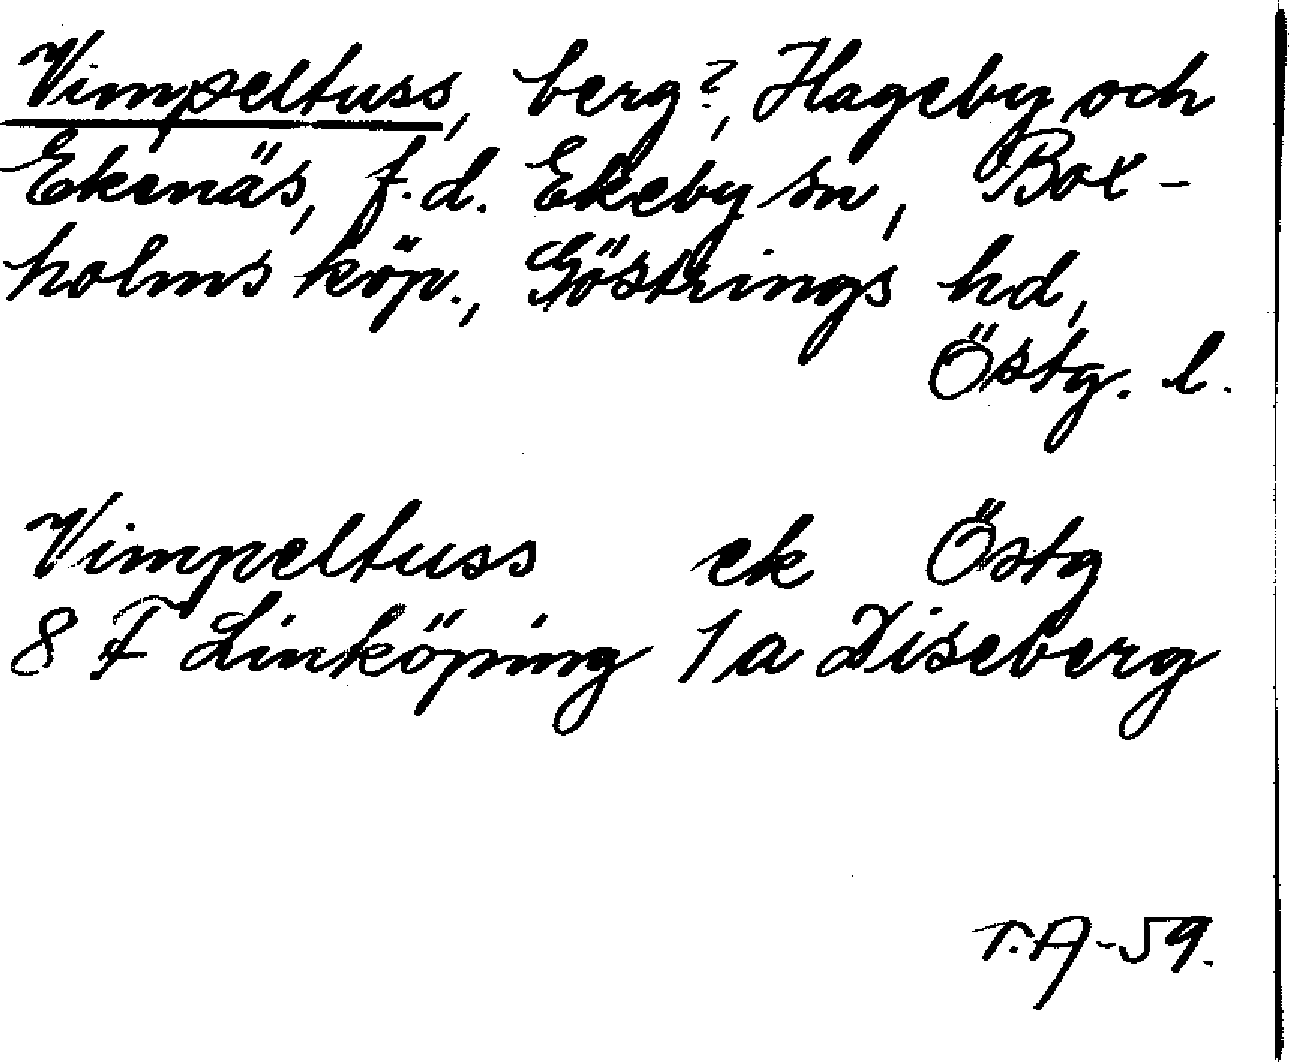 Vimpeltuss, berg?, Hageby och
Ekenäs, f.d. Ekeby sn, Box-
holms köp., Göstrings hd,
Östg. l.
Vimpeltuss ek Östg
8 F Linköping 1a Diseberg
T.A-59.